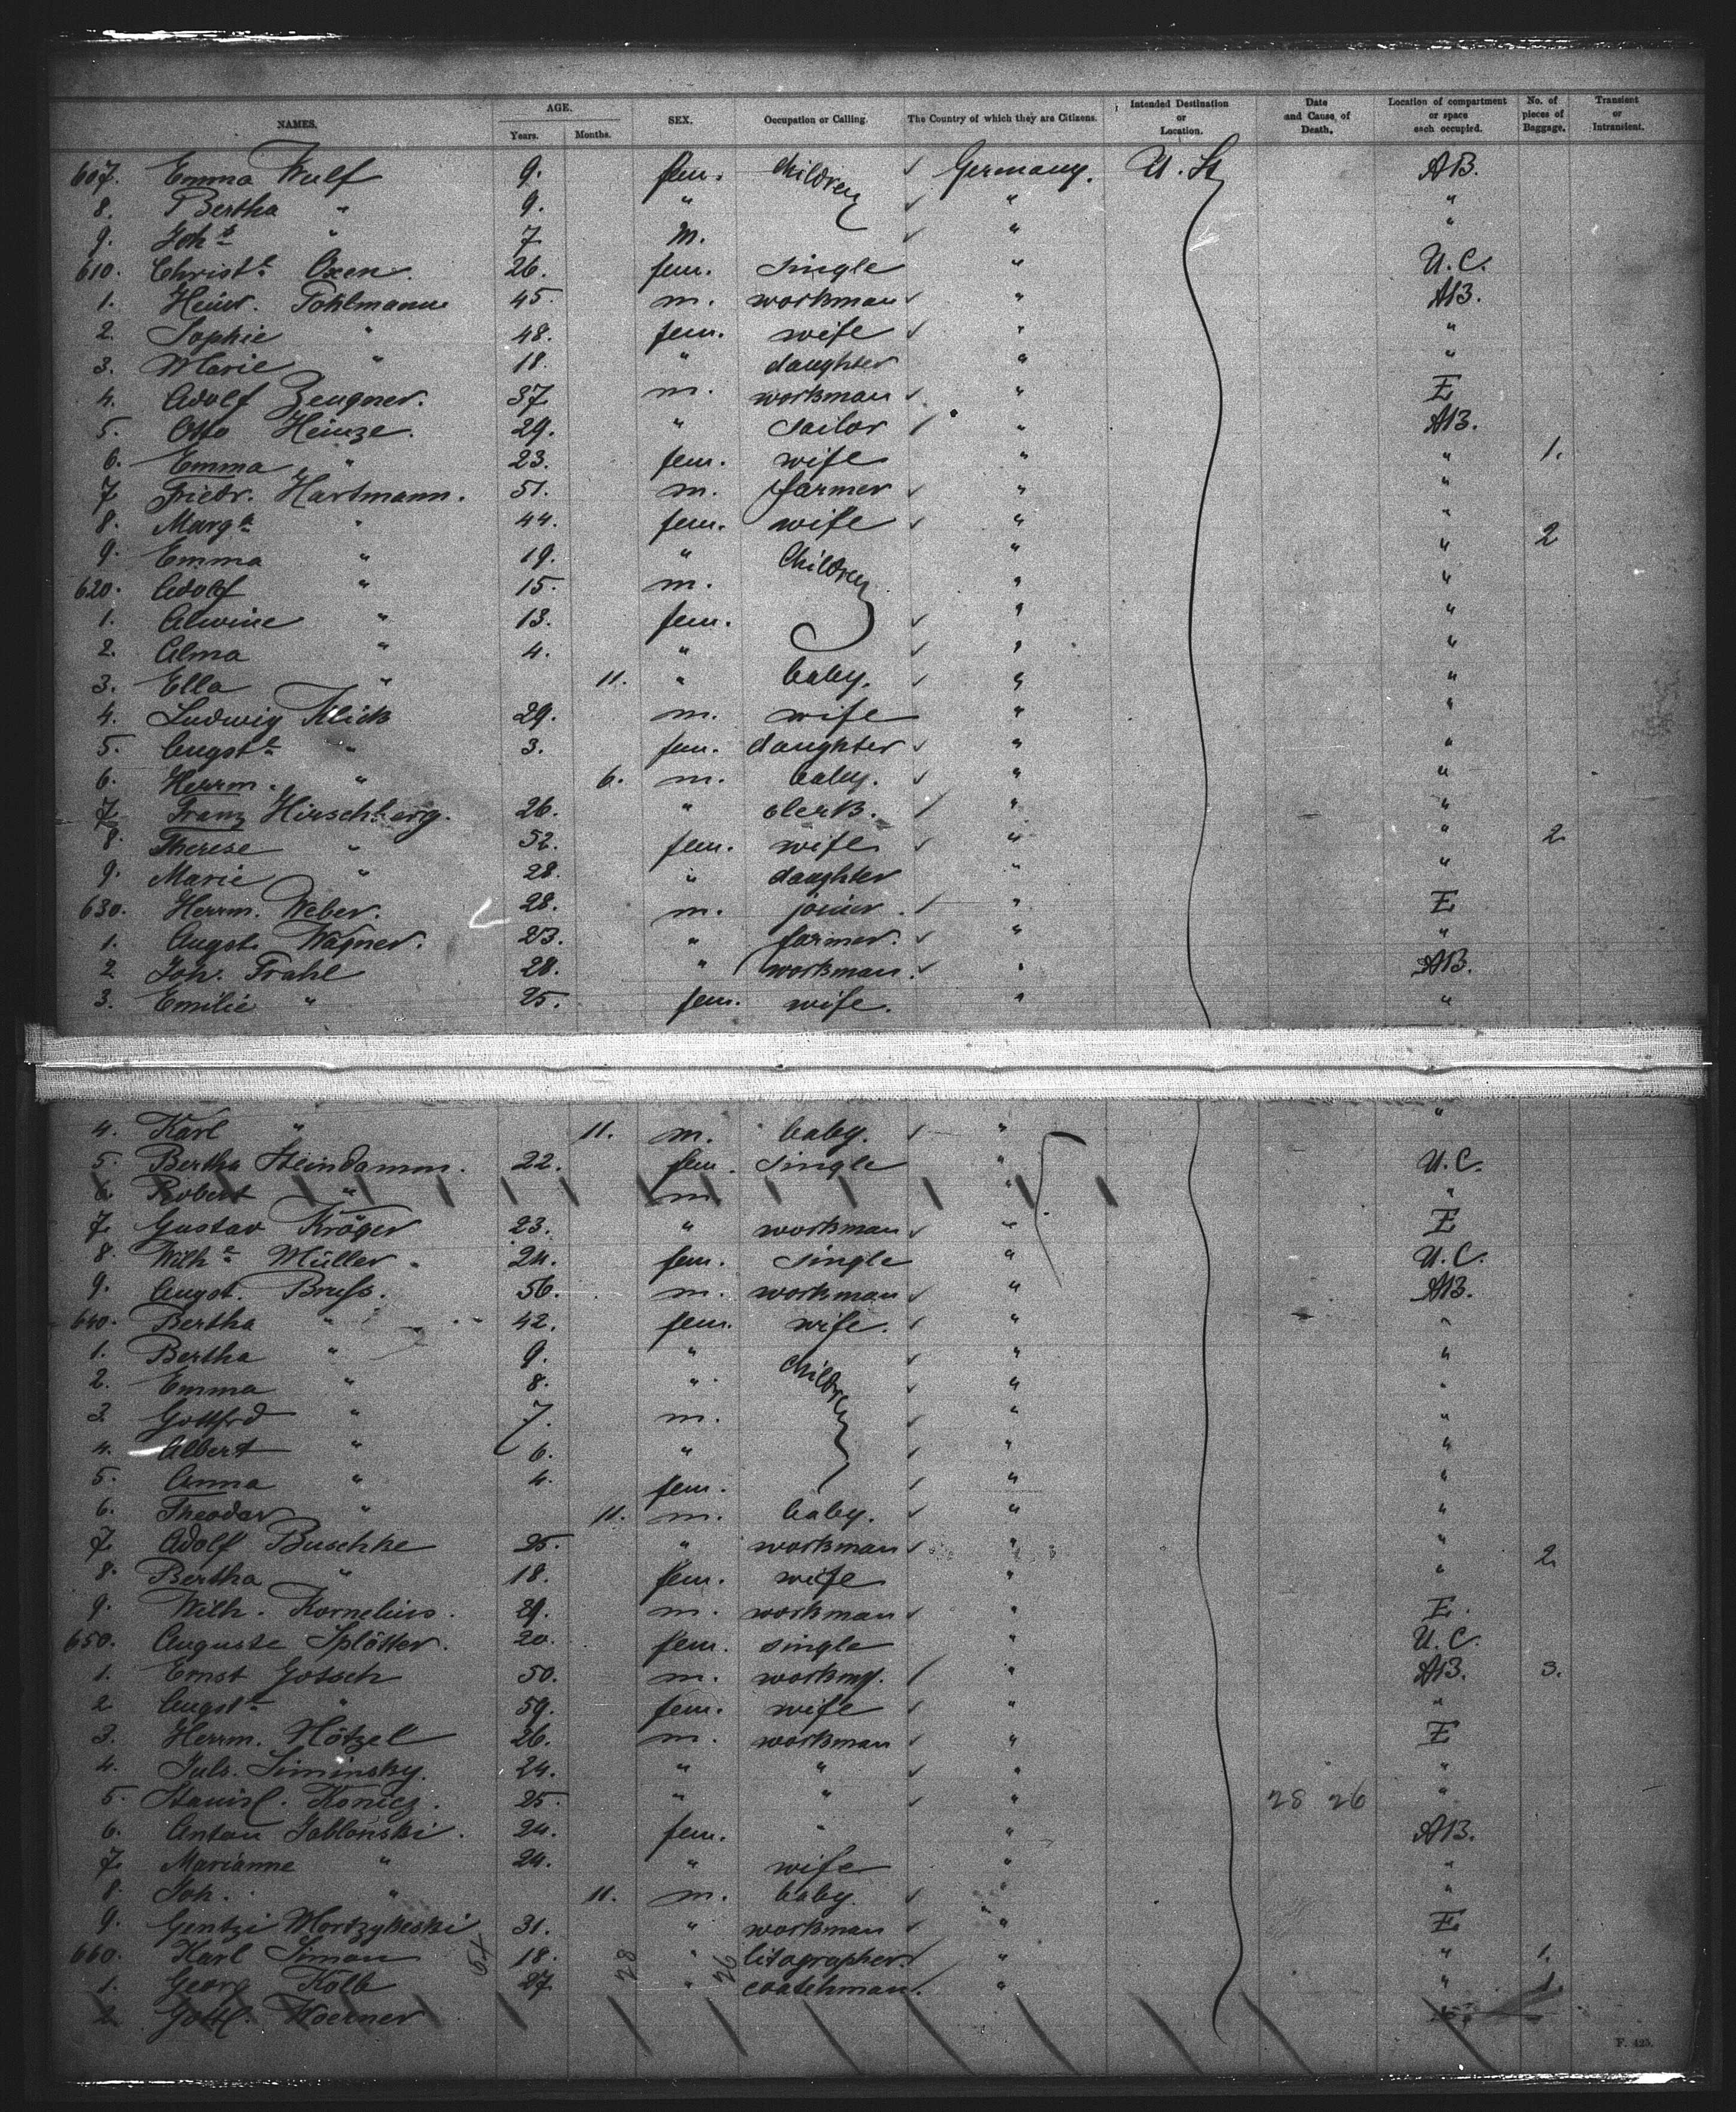 NAMES. AGE. Years. Months. SEX. Occupation or Calling. The Country of which they are Citizens. Intended Destination or Location. Date and Cause of Death. Location of compartment or space each occupied. No. of pieces of Baggage. Transient or Intransient.
607. Emma Wulf 9. fem. Children ✓ Germany. U. St AB.
8. Bertha " 9. " ✓ " "
9. Johs " 7 m. ✓ " "
610. Christe Oxen. 26. fem. single " U.C.
1. Heinr. Pohlmann 45. m. workman ✓ " AB.
2. Sophie " 48. fem. wife ✓ " "
3. Marie " 18. " daughter " "
4. Adolf Zeugner. 37 m. workman ✓ " E
5. Otto Heinze. 29. " sailor / " AB.
6. Emma " 23. fem. wife " " 1.
7 Friedr. Hartmann. 51. m. farmer ✓ " "
8. Marge " 44. fem. wife ✓ " " 2
9. Emma " 19. " Children " "
620. Adolf " 15. m. " "
1. Alwine " 13. fem. ✓ " "
2. Alma " 4. " ✓ " "
3. Ella " 11. " baby. ✓ " "
4. Ludwig Klick 29. m. wife " "
5. Augste " 3. fem. daughter ✓ " "
6. Herrm. " 6. m. baby. ✓ " "
7. Franz Hirschberg. 26. " clerk. / " "
8. Therese " 52. fem. wife ✓ " " 2
9. Marie " 28. " daughter " "
630. Herrm. Weber. 28. m. joiner. / " E
1. Augst. Wagner. 23. " farmer. ✓ " "
2 Joh. Prahl 28. " workman. ✓ " AB.
3. Emilie " 25. fem. wife. " "
4. Karl " 11. m. baby. ✓ " "
5. Bertha Steindamm. 22. fem. single " U.C.
6. Robert " m " "
7. Gustav Kröger 23. " workman ✓ " E
8. Wilhe Müller. 24. fem. single " U.C.
9. Augst. Bruss. 56. m. workman ✓ " AB.
640. Bertha " 42. fem. wife. ✓ " "
1. Bertha " 9. " Children ✓ " "
2. Emma " 8. " ✓ " "
3 Gottfrd " 7. m. ✓ " "
4. Albert " 6. " ✓ " "
5. Anna " 4. fem. ✓ " "
6. Theodor " 11. m. baby. ✓ " "
7. Adolf Buschke 25. " workman ✓ " " 2
8. Bertha " 18. fem. wife " "
9. Wilh. Kornelius. 29. m. workman ✓ " E.
650. Auguste Splötter. 20. fem. single " U.C.
1. Ernst Gotsch 50. m. workmg. / " AB. 3.
2 Augste " 59. fem. wife ✓ " "
3. Herrm. Hötzel 26. m. workman " E
4. Juls. Siminsky. 24. " " ✓ " "
5. Stanisl. Konicz. 25. " " ✓ " 28 26 "
6. Anton Jablonski. 24. fem. " " AB.
7. Marianne " 24. " wife " "
8. Joh. " 11. m. baby. ✓ " "
9. Gentzi 31. " workman ✓ " E
660. Karl Simon 54 18. 28 " 26 litographer. / " " 1.
1. Georg Kolb 27 " coatchman. / " " 1.
2. Gottl. Woerner
F. 425.